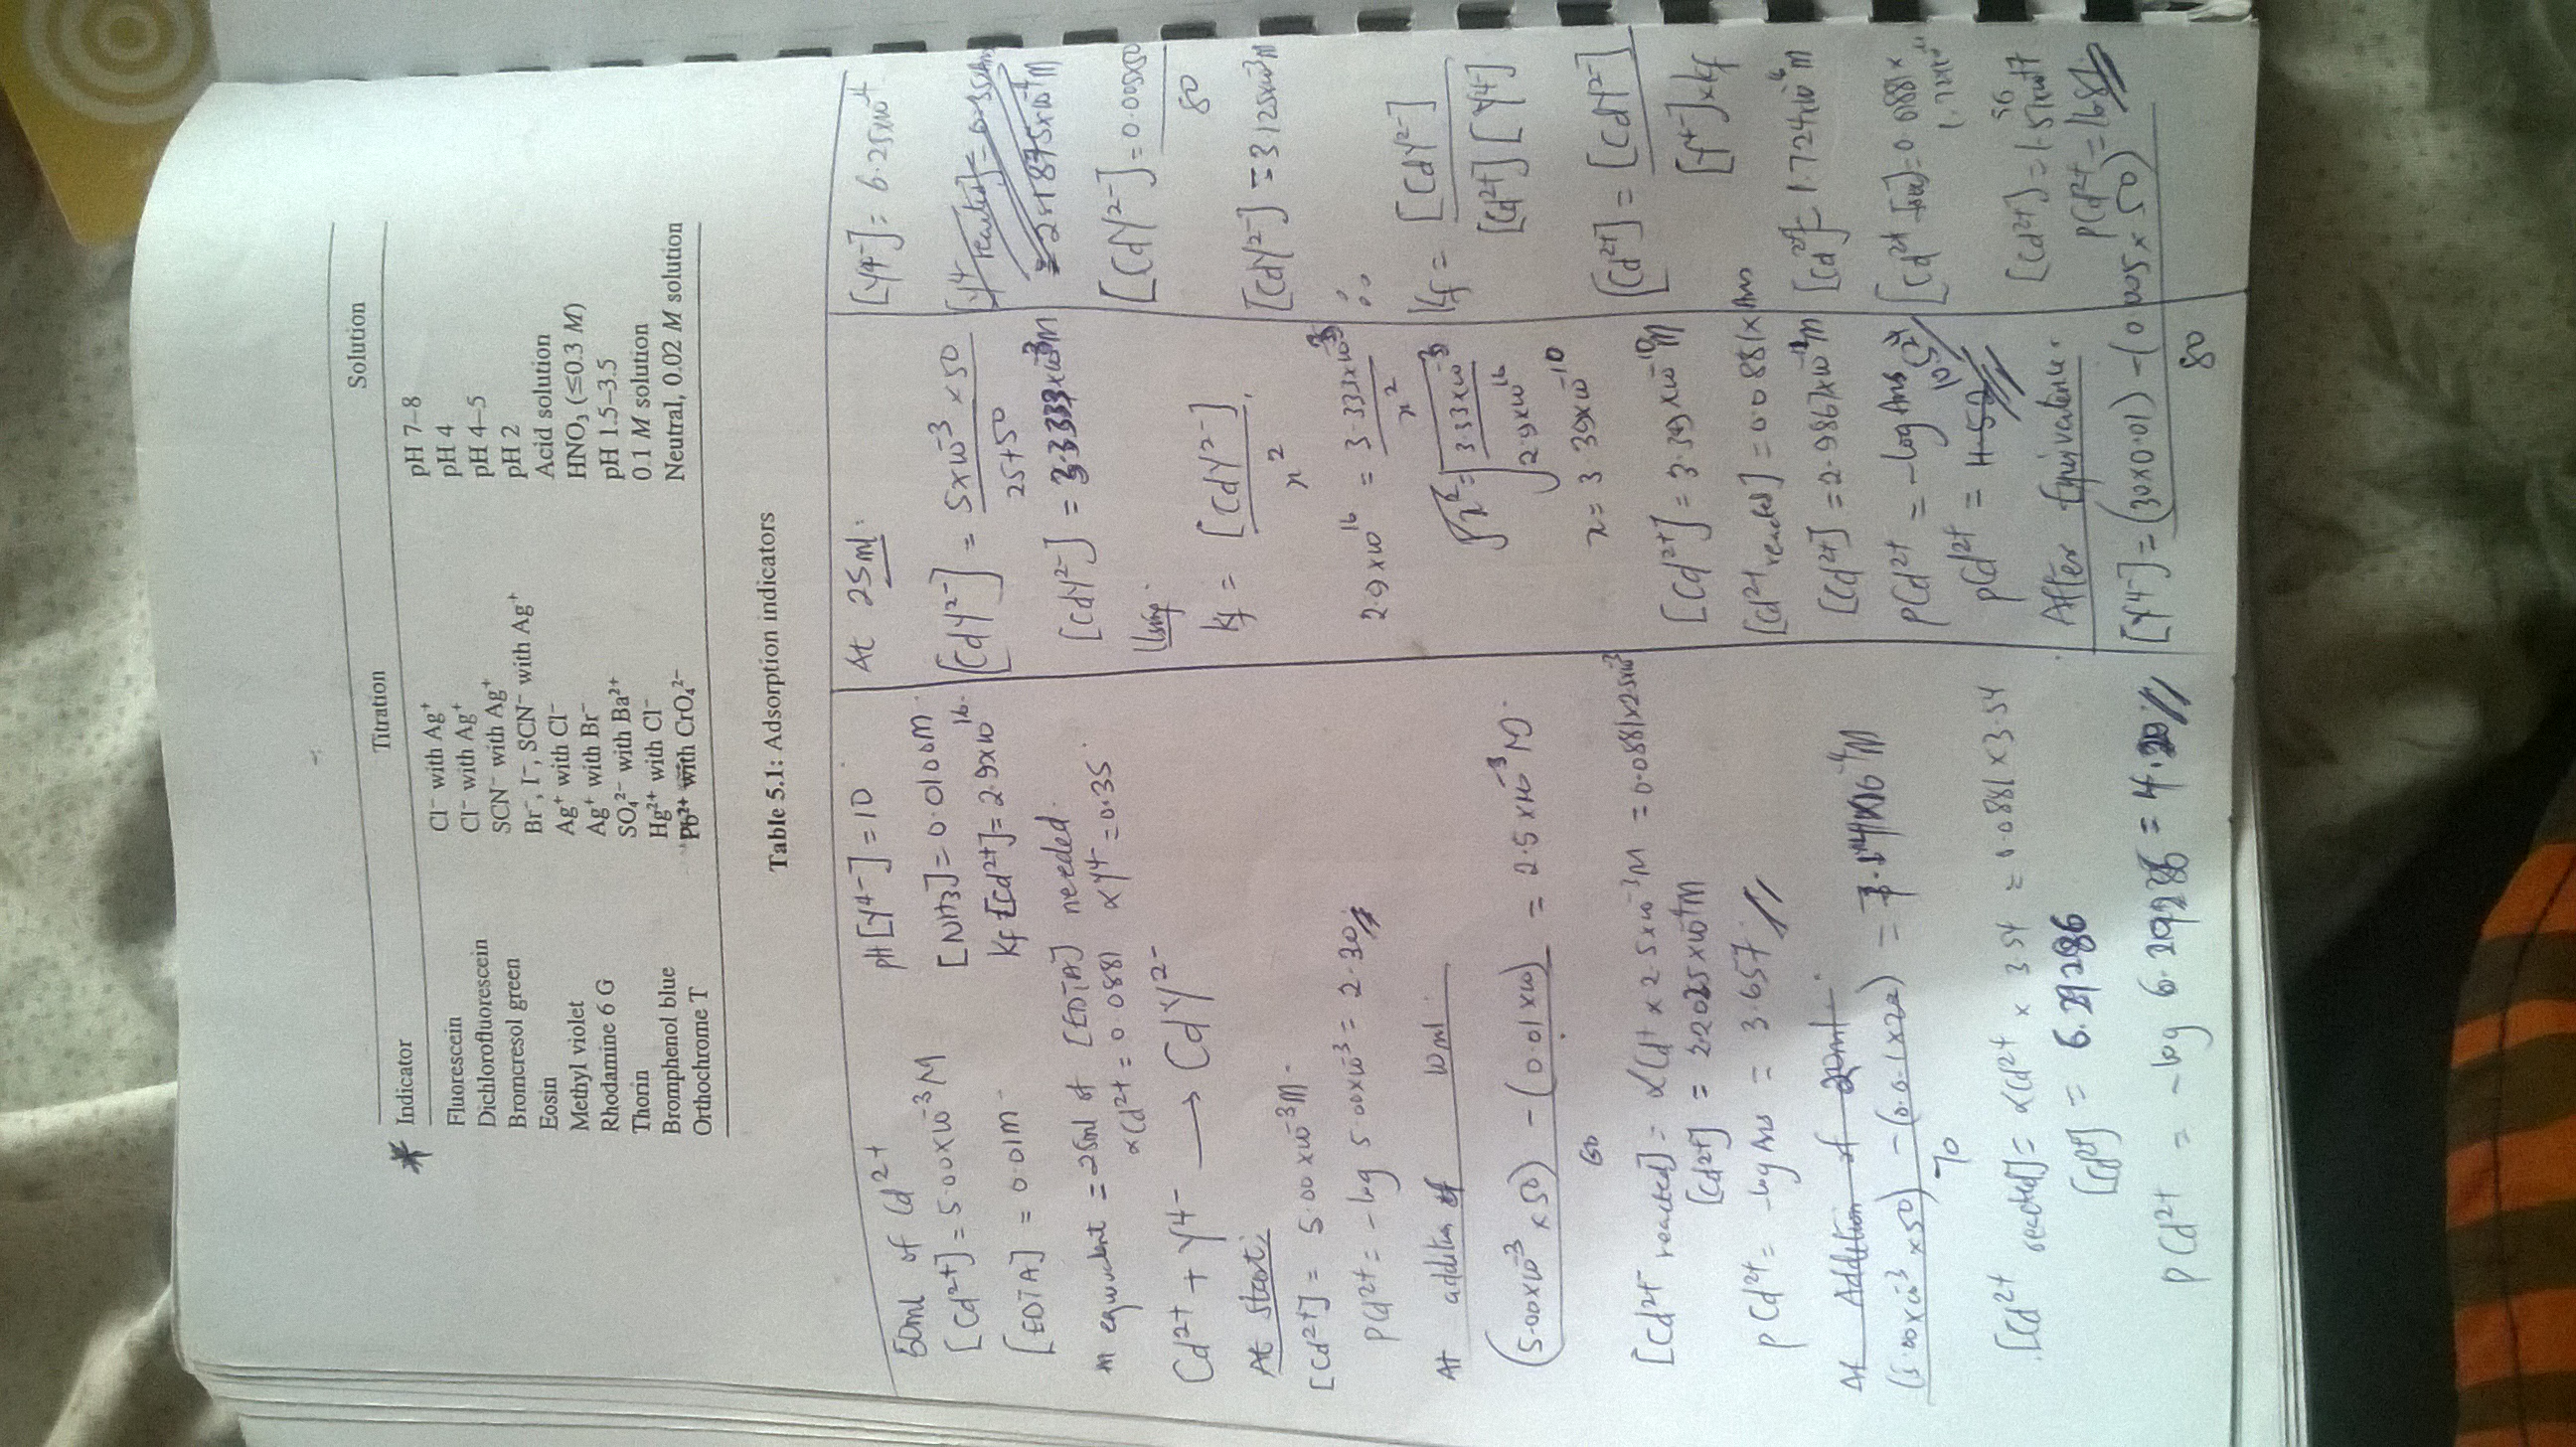 Indicator Titration Solution
Fluorescein Cl⁻ with Ag⁺ pH 7–8
Dichlorofluorescein Cl⁻ with Ag⁺ pH 4
Bromcresol green SCN⁻ with Ag⁺ pH 4–5
Eosin Br⁻, I⁻, SCN⁻ with Ag⁺ pH 2
Methyl violet Ag⁺ with Cl⁻ Acid solution
Rhodamine 6 G Ag⁺ with Br⁻ HNO₃ (≤0.3 M)
Thorin SO₄²⁻ with Ba²⁺ pH 1.5–3.5
Bromphenol blue Hg²⁺ with Cl⁻ 0.1 M solution
Orthochrome T Pb²⁺ with CrO₄²⁻ Neutral, 0.02 M solution
Table 5.1: Adsorption indicators
50ml of Cd²⁺ pH [Y⁴⁻] = 10
[Cd²⁺] = 5.00x10⁻³M [NH3] = 0.0100M
[EDTA] = 0.01M Kf [Cd²⁺] = 2.9x10¹⁶
m equivalent = 25ml of [EDTA] needed
αCd²⁺ = 0.0881 αY⁴⁻ = 0.35
Cd²⁺ + Y⁴⁻ → CdY²⁻
At start:
[Cd²⁺] = 5.00x10⁻³M
pCd²⁺ = -log 5.00x10⁻³ = 2.30
At addition of 10ml
(5.00x10⁻³ x 50) - (0.01x10) = 2.5x10⁻³M
60
[Cd²⁺ reacted] = αCd²⁺ x 2.5x10⁻³M = 0.0881x2.5x10⁻³
[Cd²⁺] = 2.2025x10⁻⁴M
pCd²⁺ = -log Ans = 3.657
At Addition of 20ml
(5.00x10⁻³ x 50) - (0.01x20) =
70
[Cd²⁺ reacted] = αCd²⁺ x 3.54 = 0.0881 x 3.54
pCd²⁺ = -log
At 25ml:
[CdY²⁻] = 5x10⁻³ x 50
25+50
[CdY²⁻] = 3.333x10⁻³M
Using
Kf = [CdY²⁻]
x²
2.9x10¹⁶ = 3.333x10⁻³
x²
√x² = √3.33x10⁻³
2.9x10¹⁶
x = 3.39x10⁻¹⁰
[Cd²⁺] = 3.39x10⁻¹⁰M
[Cd²⁺ reacted] = 0.0881 x Ans
[Cd²⁺] = 2.9867x10⁻¹¹M
pCd²⁺ = -log Ans
10.524
pCd²⁺ =
After Equivalence
[Y⁴⁻] = (30x0.01) - (0.005x50)
80
[Y⁴⁻] = 6.25x10⁻⁴
[CdY²⁻] = 0.005x50
80
[CdY²⁻] = 3.125x10⁻³M
∴ Kf = [CdY²⁻]
[Cd²⁺] [Y⁴⁻]
[Cd²⁺] = [CdY²⁻]
[Y⁴⁻] x Kf
[Cd²⁺] = 1.724x10⁻¹⁶M
pCd²⁺ = 16.81